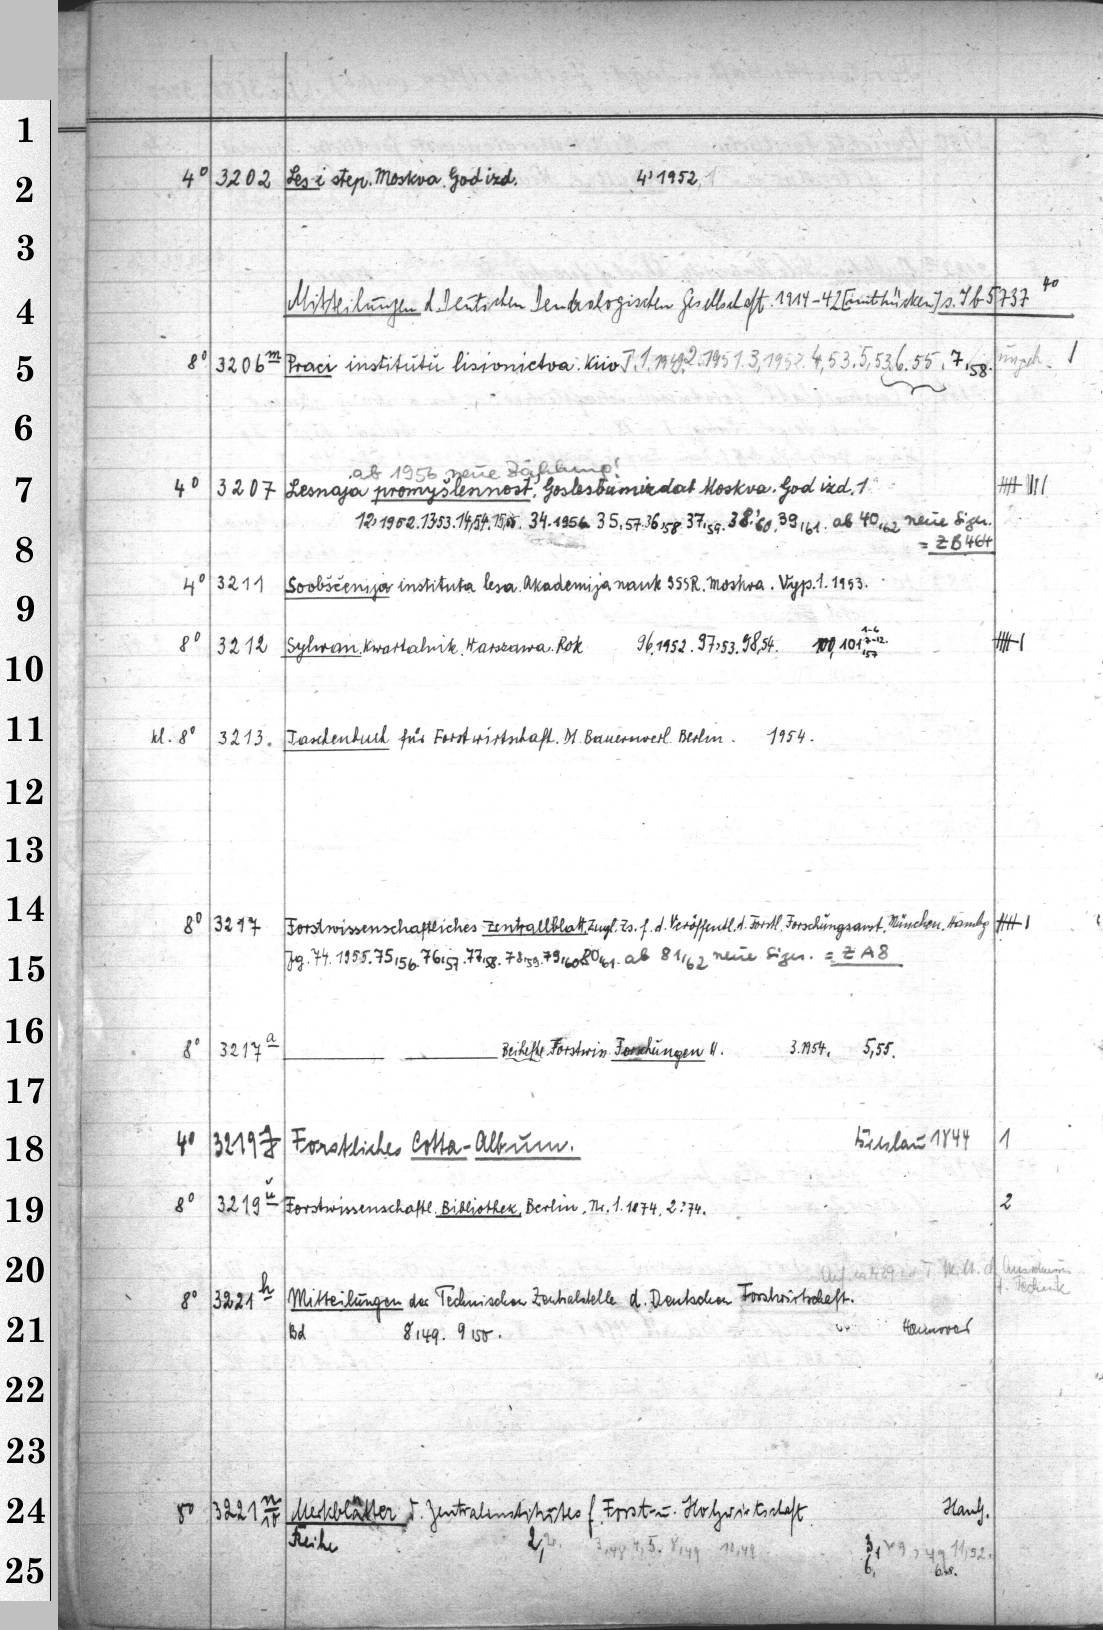 1
2
4° 3202 Les i step. Moskva. God izd. 4,1952,1
3
4
Mitteilungen d. Deutschen Dendrologischen Gesellschaft. 1914-42 [mit Lücken] s. Jb 5737 4°
5
8° 3206 m Praci institutu lisivnictva. Kiiv T. 1.1949,2.1951.3,1952.4,53.5,53,6.55,7,58.
6
7
ab 1956 neue Zählung!
4° 3207 Lesnaja promyšlennost, Goslesbumizdat Moskva. God izd. 1
12,1952.13,53.14,54.15,55. 34.1956 35,57.36,58.37,59.38,60.39,61. ab 40,62 neue Sign.
8
= ZB 464
9
4° 3211 Soobščenija instituta lesa. Akademija nauk SSSR. Moskva. Vyp. 1. 1953.
10
8° 3212 Sylwan. Kwartalnik. Warszawa. Rok 96,1952. 97,53. 98,54. 100, 101 1-6 7-12 ,57
11
kl. 8° 3213. Taschenbuch für Forstwirtschaft. Dt. Bauernverl. Berlin. 1954.
12
13
14
8° 3217 Forstwissenschaftliches Zentralblatt. Zugl. Zs. f. d. Veröffentl. d. Forstl. Forschungsanst. München. Hambg
15
Jg. 74. 1955. 75,56. 76,57. 77,58. 78,59. 79,60. 80,61. ab 81,62 neue Sign. = ZA 8
16
8° 3217 a Beihefte. Forstwiss. Forschungen H. 3.1954. 5,55.
17
18
4° 3219 Forstliches Cotta-Album. Breslau 1844 1
19
8° 3219 u Forstwissenschaftl. Bibliothek. Berlin. Nr. 1. 1874. 2.74. 2
20
21
8° 3221 h Mitteilungen der Technischen Zentralstelle d. Deutschen Forstwirtschaft.
Bd 8,49. 9,50. Hannover
22
23
24
8° 3221 Merkblätter d. Zentralinstitutes f. Forst- u. Holzwirtschaft Hambg.
Reihe 2,
25